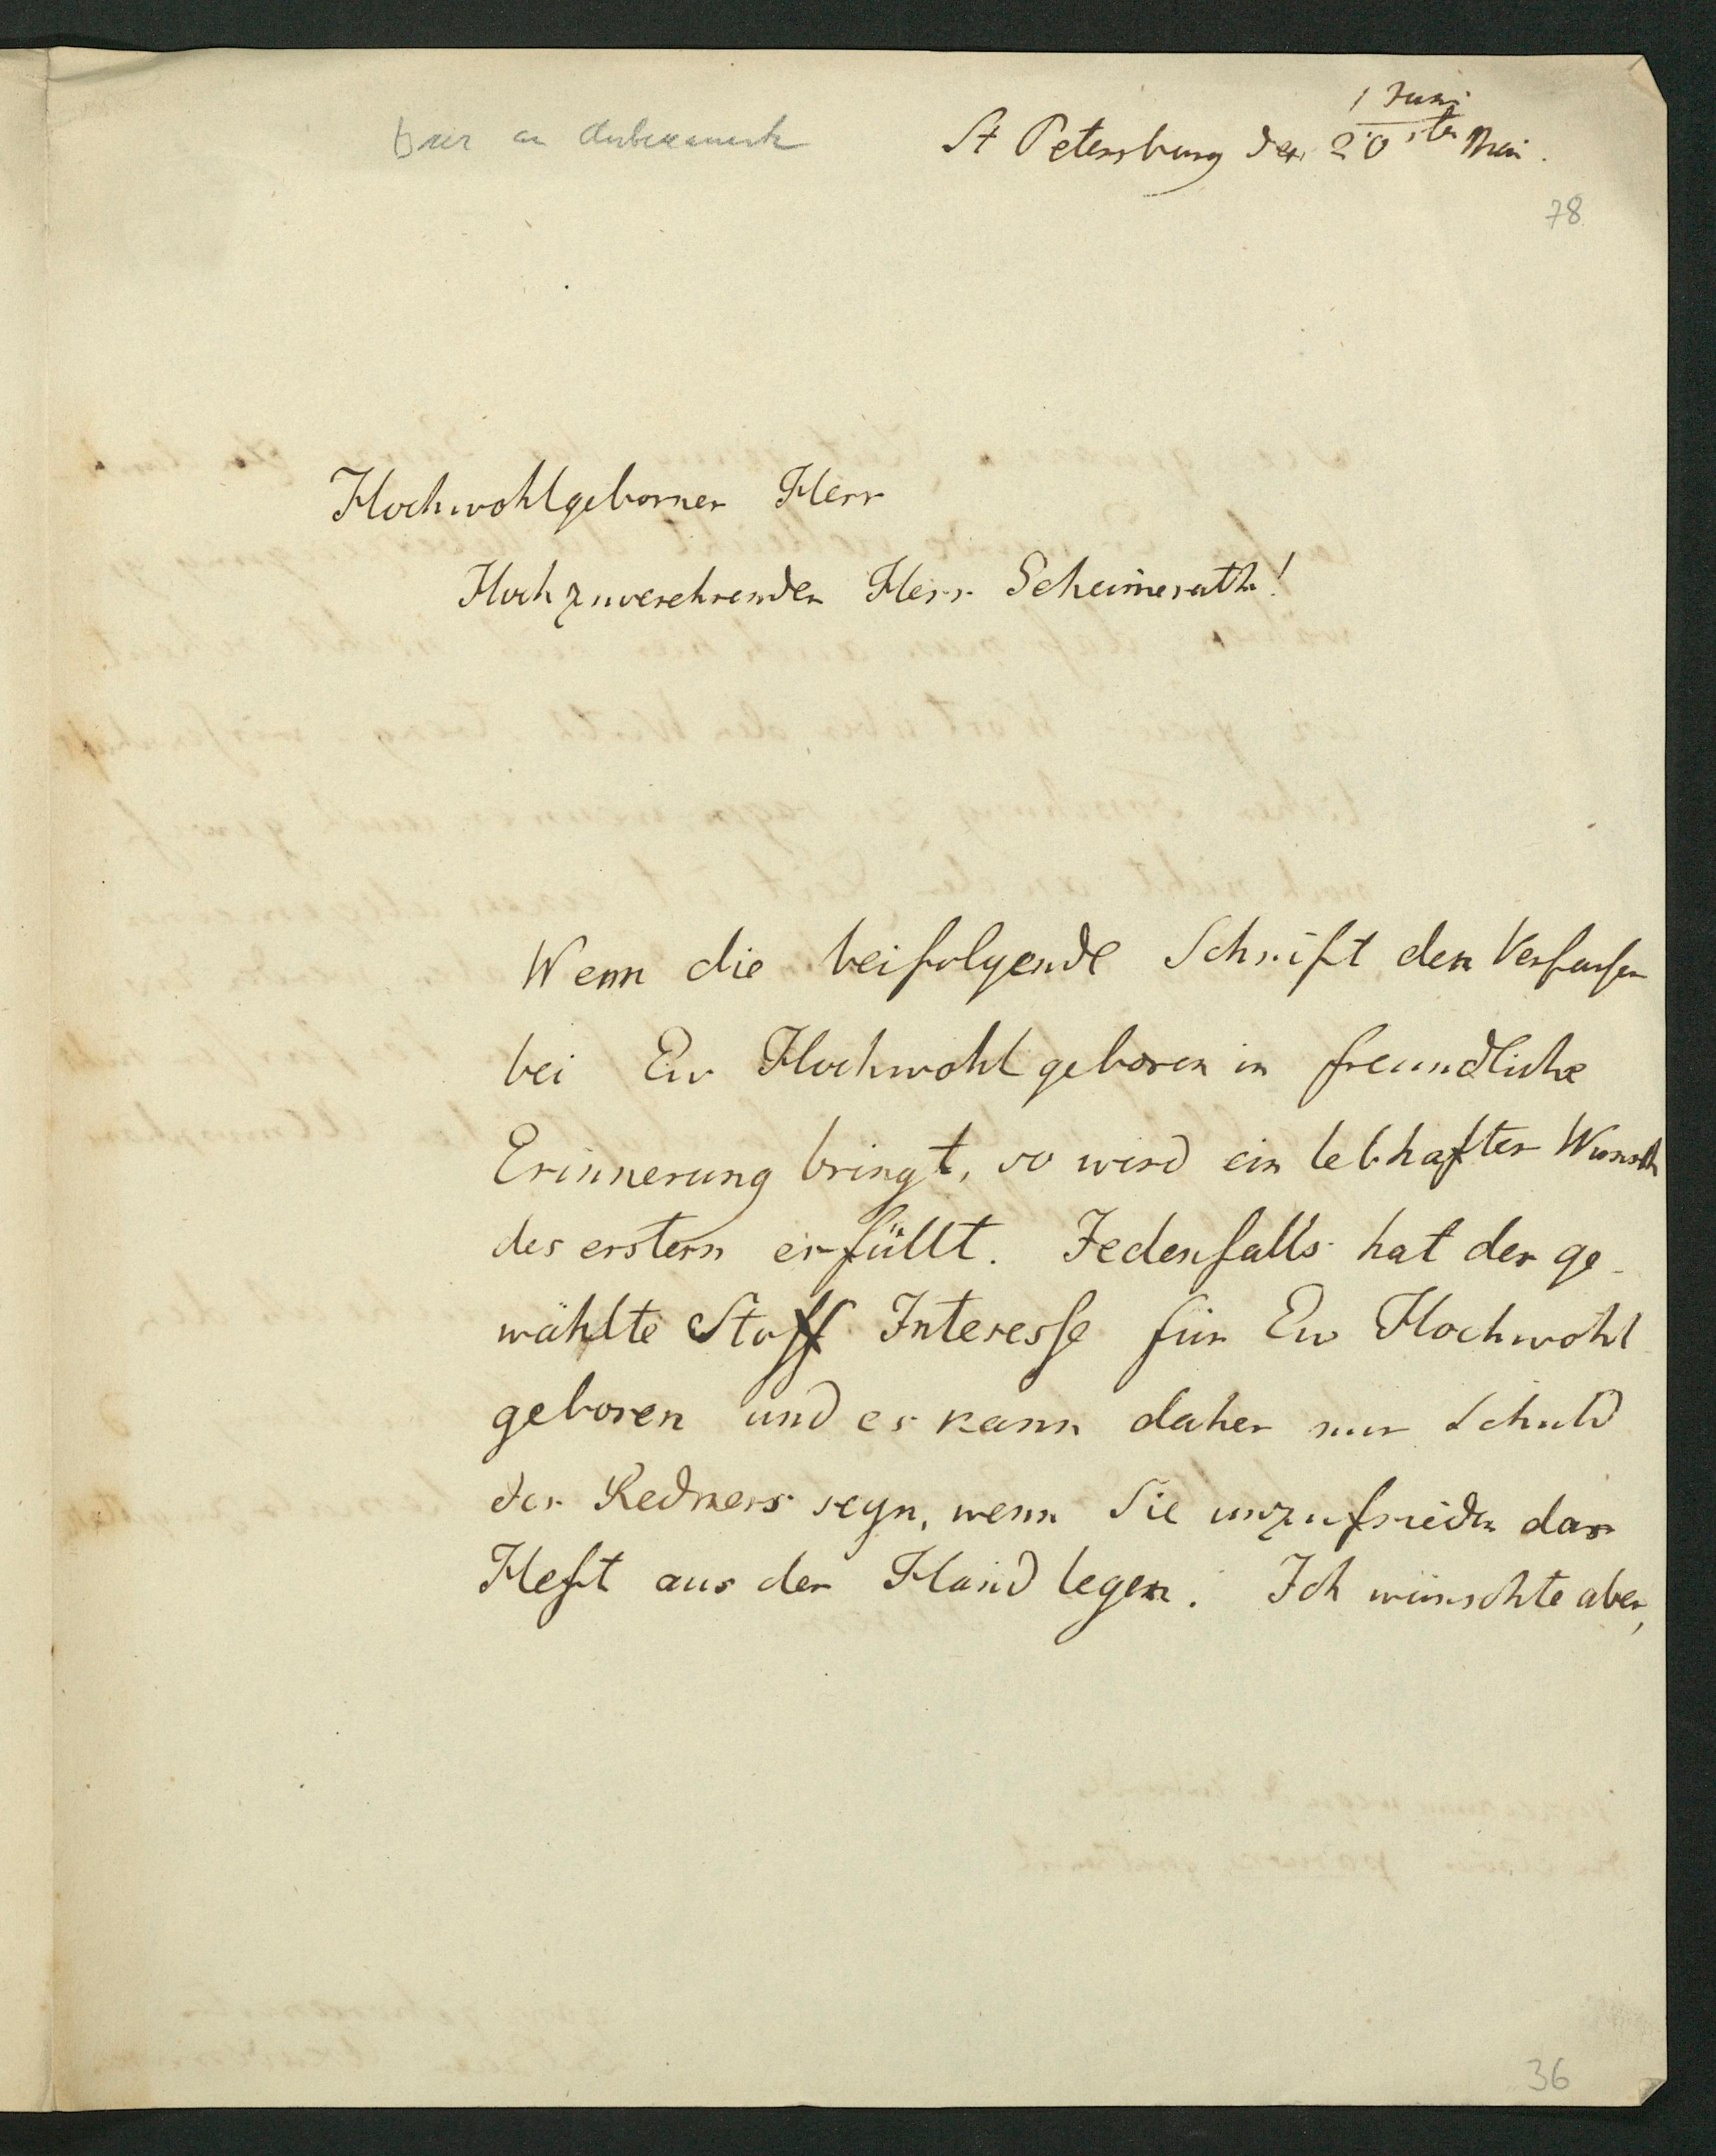 Baer an Unbekannt
St Petersburg den 20sten Mai.
1 Juni
78
Hochwohlgeborner Herr
Hochzuverehrender Herr Geheimerath!
Wenn die beifolgende Schrift den Verfasser
bei Ew Hochwohlgeboren in freundliche
Erinnerung bringt, so wird ein lebhafter Wunsch
des erstern erfüllt. Jedenfalls hat der ge-
wählte Stoff Interesse für Ew Hochwohl
geboren und es kann daher nur Schuld
des Redners seyn, wenn Sie unzufrieden das
Heft aus der Hand legen. Ich wünschte aber,
36